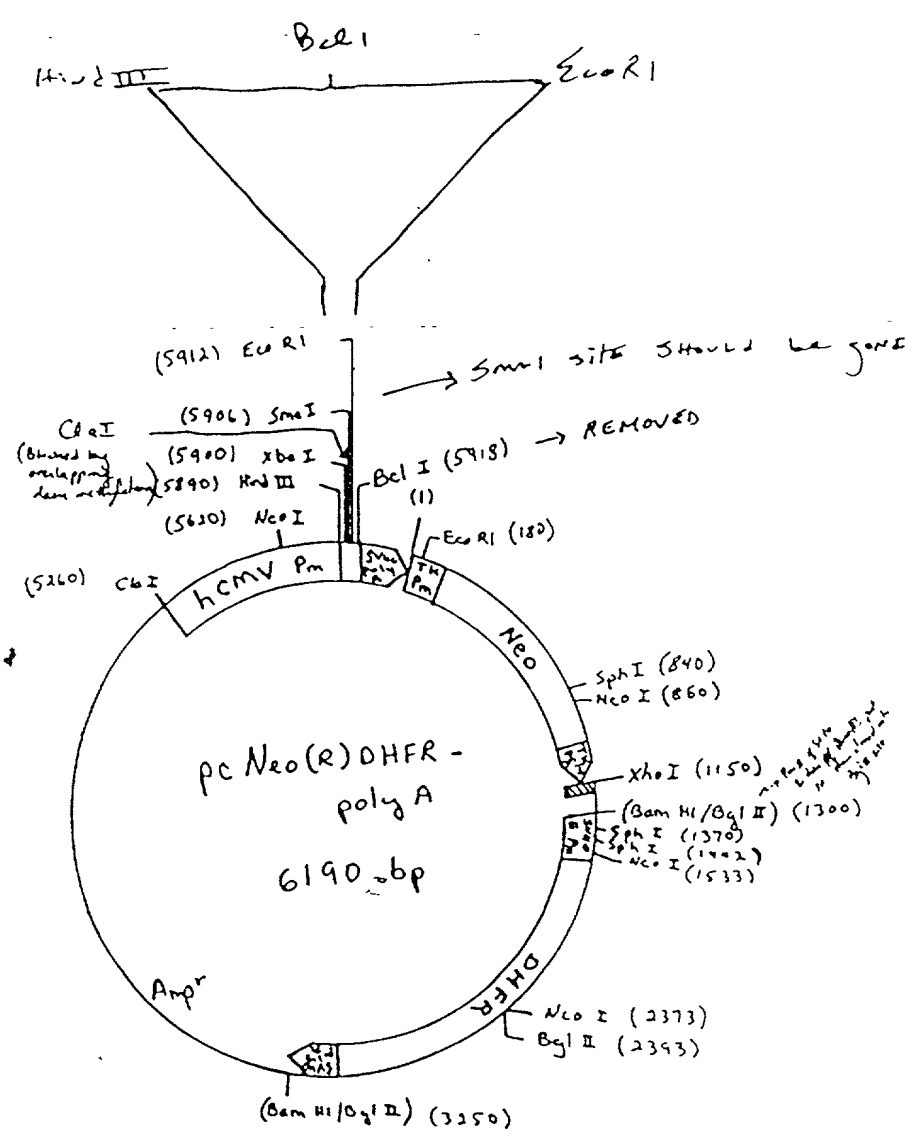 Bcl I
Hind III
EcoRI
(5912) EcoRI
SmaI site should be gone
(5906) SmaI
ClaI
(Blocked by
overlapping
dam methylation)
(5900) XbaI
(5890) Hind III
Bcl I (5918) → REMOVED
(1)
(5620) NcoI
EcoRI (180)
(5260) ClaI
hCMV Pm
TK
Pm
Neo
SphI (840)
NcoI (860)
XhoI (1150)
(Bam HI/Bgl II) (1300)
SphI (1370)
SphI (1442)
NcoI
(1533)
SV40
pc Neo(R) DHFR-
poly A
6190 bp
DHFR
Ampr
NcoI (2373)
Bgl II (2393)
(Bam HI/Bgl II) (3250)